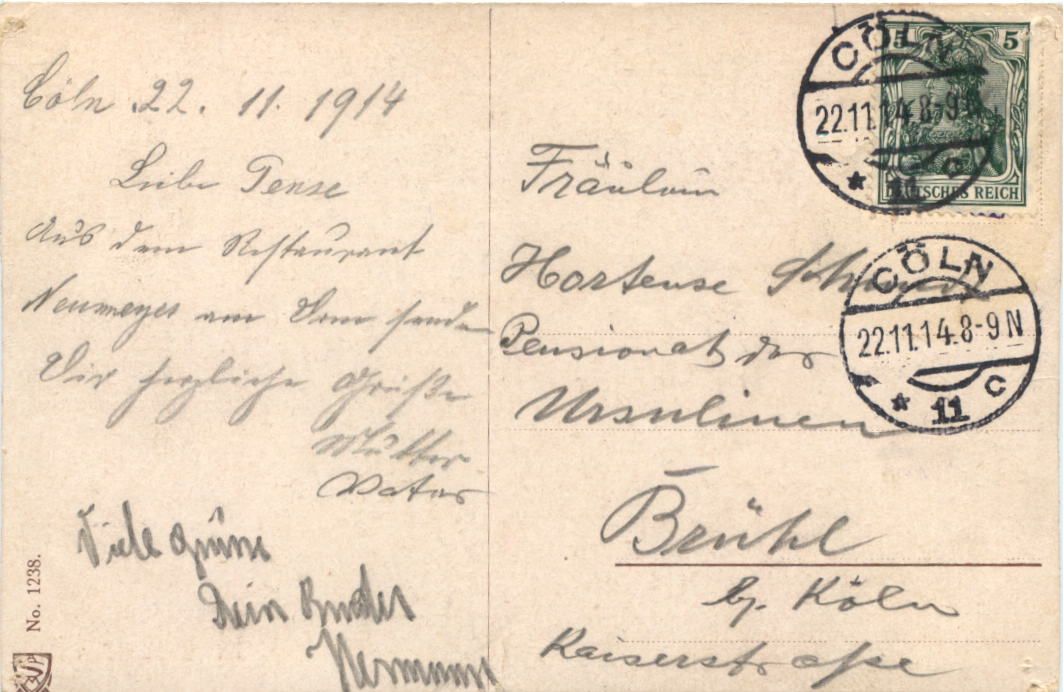 Cöln 22. 11. 1914
Liebe Tense
Aus dem Restaurant
Neumeyer am Dom senden
Dir herzliche Grüße
Mutter
Vater
Viele Grüsse
Dein Bruder
Hermann
No. 1238.
CÖLN
22.11.14.8-9N
* 11 c
5 5
DEUTSCHES REICH
CÖLN
22.11.14.8-9N
* * 11 c
Fräulein
Hortense
Pensionat der
Ursulinen
Brühl
b/. Köln
Kaiserstraße